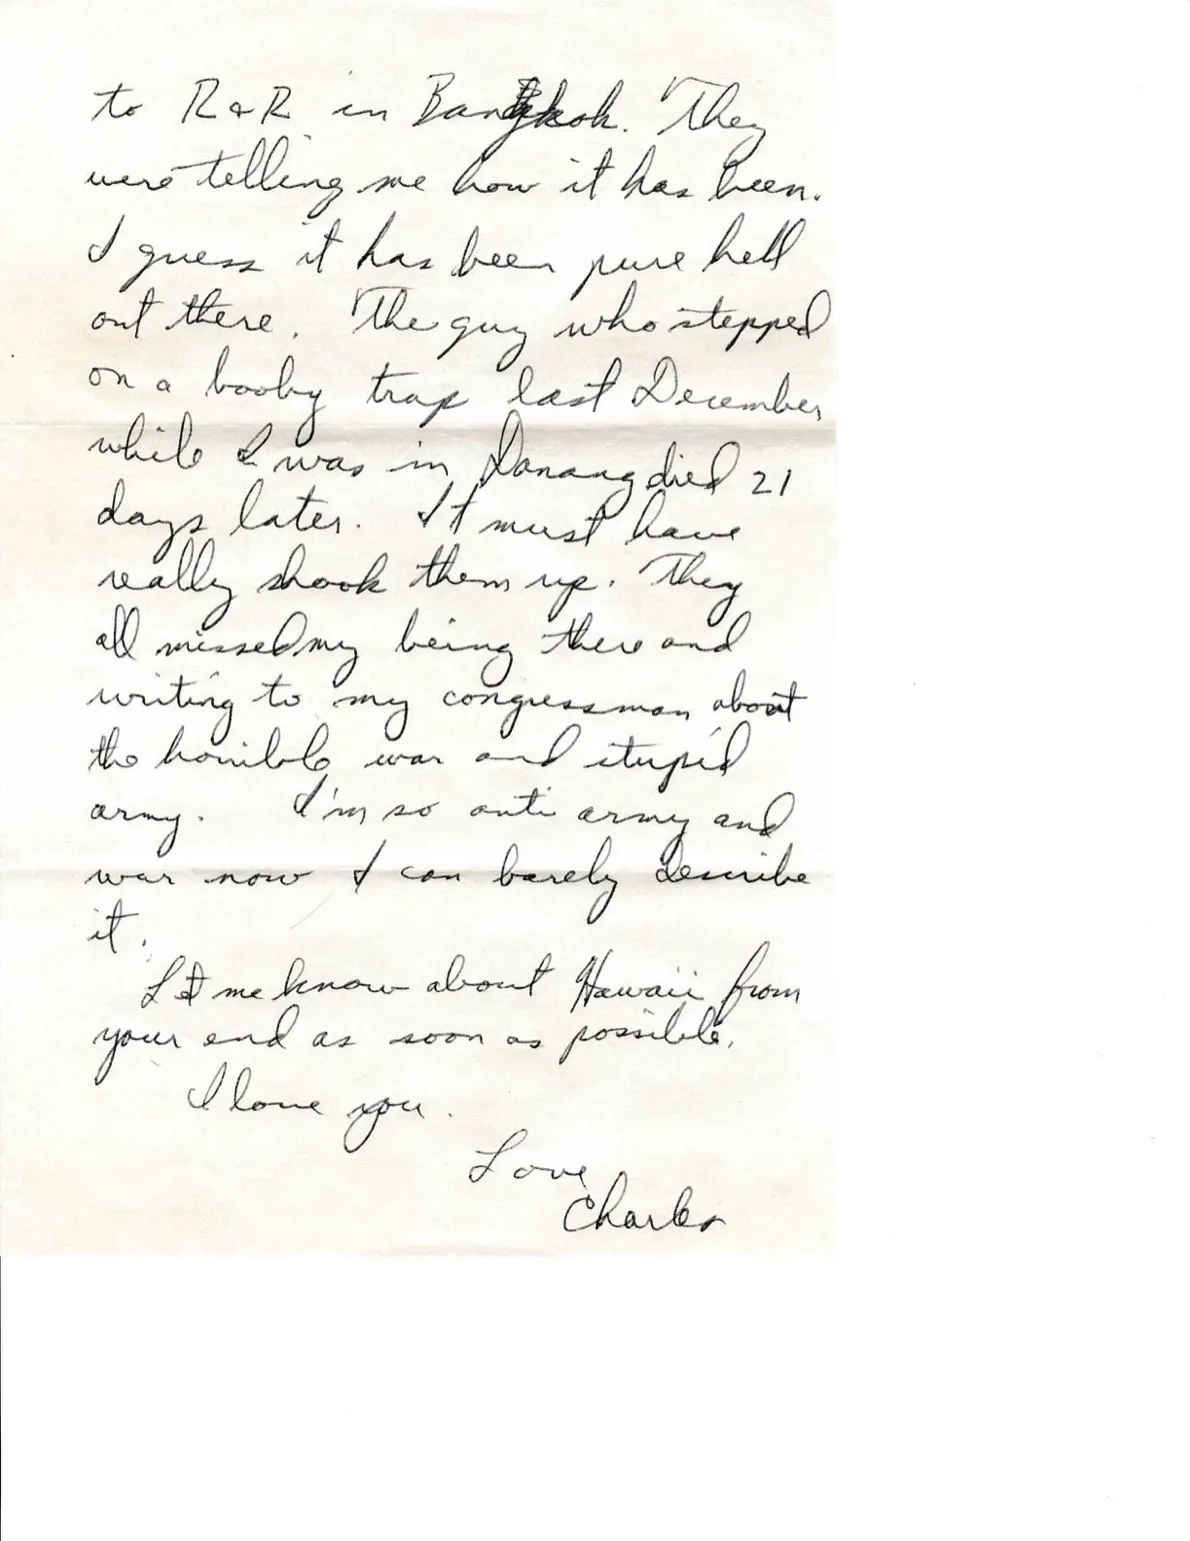 to R & R in Bangkok. They
were telling me how it has been.
I guess it has been pure hell
out there. The guy who stepped
on a booby trap last December
while I was in Danang died 21
days later. It must have
really shook them up. They
all missed my being there and
writing to my congressman about
the horrible war and stupid
army. I'm so anti army and
war now I can barely describe
it.
Let me know about Hawaii from
your end as soon as possible.
I love you.
Love,
Charles